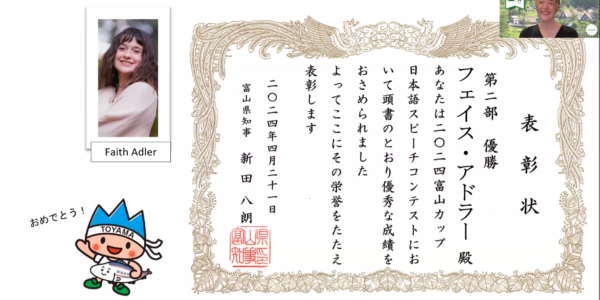 表彰状
第二部 優勝
フェイス・アドラー 殿
あなたは二〇二四富山カップ
日本語スピーチコンテストにお
いて頭書のとおり優秀な成績を
おさめられました
よってここにその栄誉をたたえ
表彰します
二〇二四年四月二十一日
富山県知事 新田 八朗
Faith Adler
おめでとう!
TOYAMA